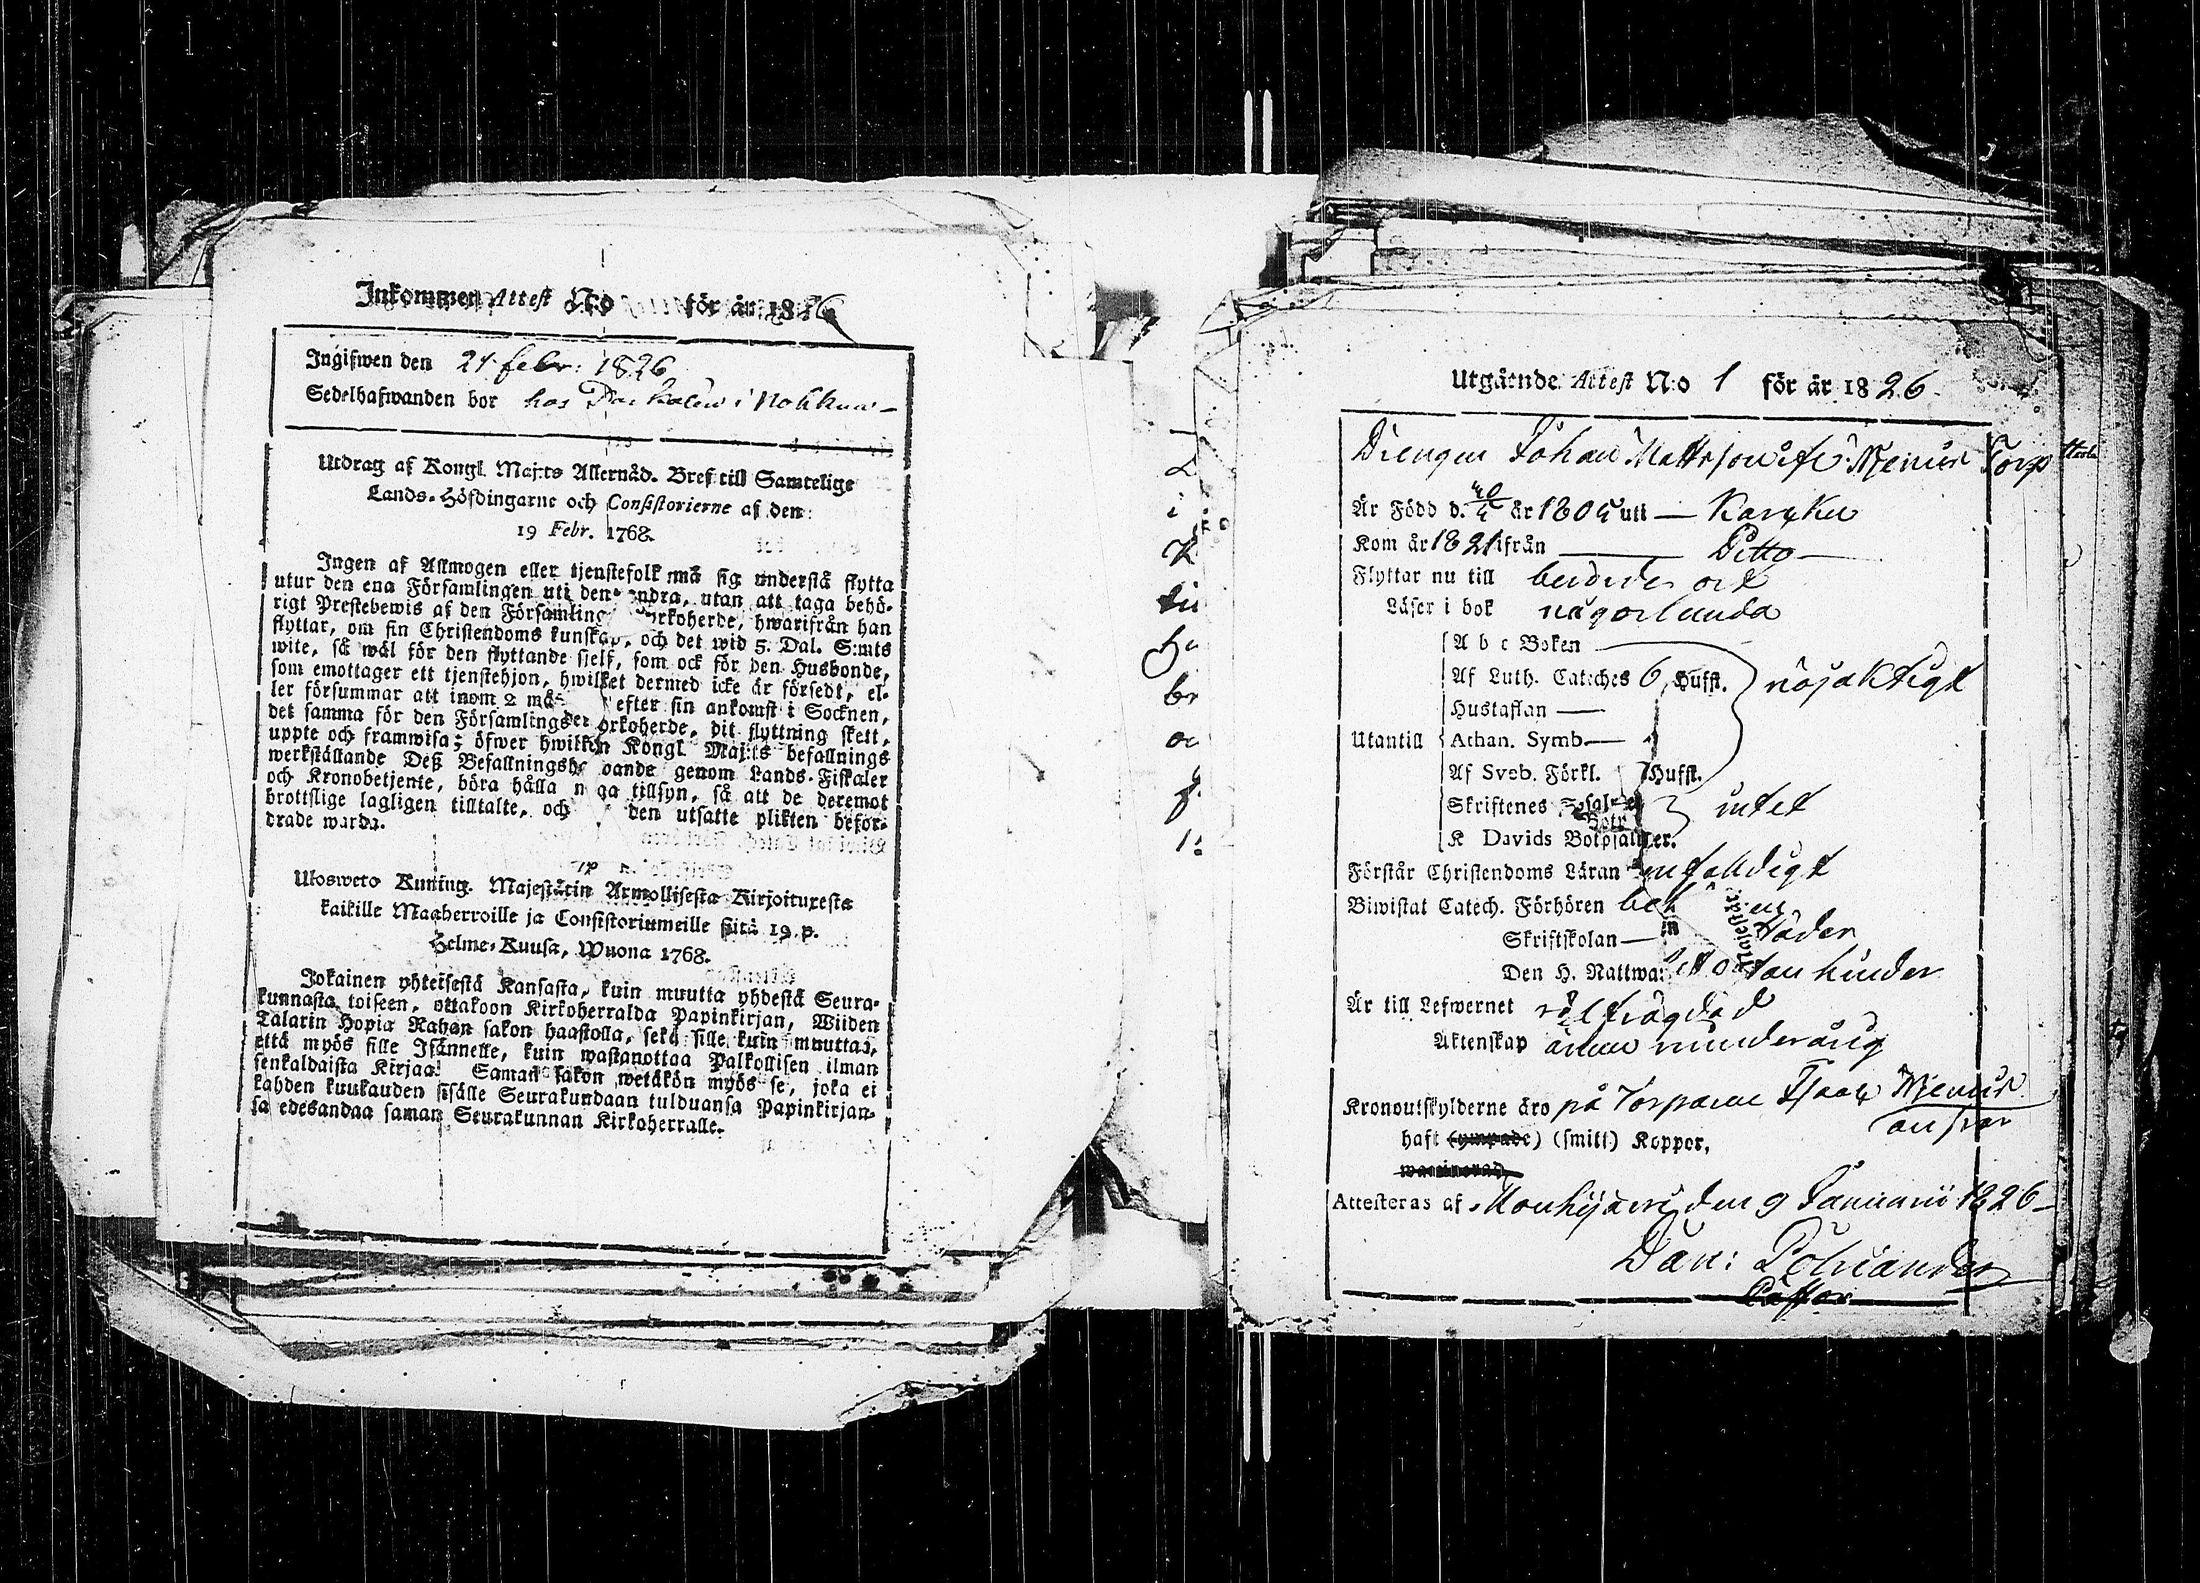 Inkommen Attest N:o för år 1826
Ingifwen den 21 febr: 1826
Sedelhafwanden bor hos i
Utdrag af Kongl. Maj:ts Allernåd. Bref till Samtelige
Lands-Höfdingarne och Consistorierne af den
19 Febr. 1768.
Ingen af Allmogen eller tjenstefolk må sig understå flytta
utur den ena Församlingen uti den andra, utan att taga behö-
rigt Prestebewis af den Församlings Kyrkoherde, hwarifrån han
flyttar, om sin Christendoms kunskap, och det wid 5. Dal. S:mts
wite, så wäl för den flyttande sjelf, som ock för den Husbonde,
som emottager ett tjenstehjon, hwilket dermed icke är försedt, el-
ler försummar att inom 2 må- efter sin ankomst i Socknen,
det samma för den Församlingens Kyrkoherde, dit flyttning skett,
uppte och framwisa; öfwer hwilken Kongl. Maj:ts befallnings
werkställande Deß Befallningsh oande genom Lands-Fiskaler
och Kronobetjente, böra hålla n ga tillsyn, så att de deremot
brottslige lagligen tilltalte, och den utsatte plikten befor-
drade warda.
Uloswето Kuning. Majestätin Armollisesta Kirjoituxesta
kaikille Maaherroille ja Consistoriumeille siitä 19. p.
Helme-Kuusa, Wuona 1768.
Jokainen yhteisestä Kansasta, kuin muutta yhdestä Seura-
kunnasta toiseen, ottakoon Kirkoherralda Papinkirjan, Wiiden
Talarin Hopia Rahan sakon haastolla, sekä sille kuin muuttaa,
että myös sille Isännelle, kuin wastanottaa Palkollisen ilman
senkaldaista Kirjaa. Saman sakon wetäkön myös se, joka ei
kahden kuukauden sisälle Seurakundaan tulduansa Papinkirjan-
sa edesandaa saman Seurakunnan Kirkoherralle.
Utgående Attest N:o 1 för år 1826
Drengen Johan Mattsson ifr. Torp
Är Född d. år 1804 uti Karkku
Kom år 1821 ifrån Ditto
Flyttar nu till ort
Läser i bok någorlunda
A b c Boken
Af Luth. Cateches 6 Hufst. nöjaktigt
Hustaflan
Utantill Athan. Symb.
Af Sveb. Förkl. Hufst.
Skriftenes intet
K Davids Botpsalmer.
Förstår Christendoms Läran enfalldigt
Biwistat Catech. Förhören
Skriftskolan
Den H. Nattwa: utan hinder
Är till Lefwernet välfrägdad
Äktenskap ännu minderårig
Kronoutskylderne äro på Torparen Isaac
ansvar
haft (ympade) (smitt) Koppor,
Attesteras af Mouhijärvi den 9 Januarii 1826
Dan: Polviander
Pastor